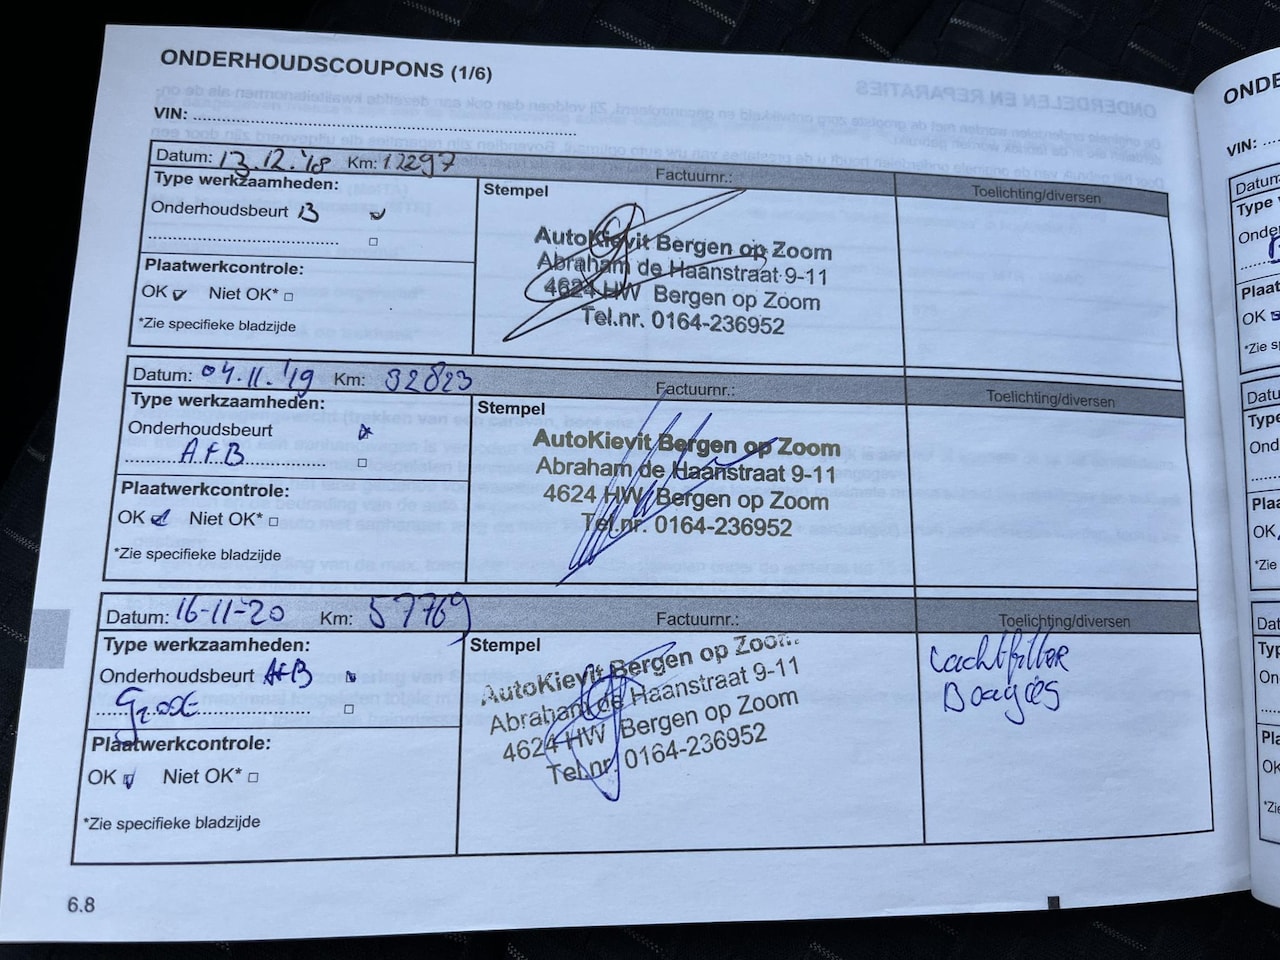 ONDERHOUDSCOUPONS (1/6)
VIN:
Datum: 13.12.'18 Km: 12297 Factuurnr.: Toelichting/diversen
Type werkzaamheden:
Onderhoudsbeurt B
Plaatwerkcontrole:
OK Niet OK*
*Zie specifieke bladzijde
Stempel
AutoKievit Bergen op Zoom
Abraham de Haanstraat 9-11
4624 HW Bergen op Zoom
Tel.nr. 0164-236952
Datum: 04.11.'19 Km: 32823 Factuurnr.: Toelichting/diversen
Type werkzaamheden:
Onderhoudsbeurt
AFB
Plaatwerkcontrole:
OK Niet OK*
*Zie specifieke bladzijde
Stempel
AutoKievit Bergen op Zoom
Abraham de Haanstraat 9-11
4624 HW Bergen op Zoom
Tel.nr. 0164-236952
Datum: 16-11-'20 Km: 57769 Factuurnr.: Toelichting/diversen
Type werkzaamheden:
Onderhoudsbeurt AFB
Groot
Plaatwerkcontrole:
OK Niet OK*
*Zie specifieke bladzijde
Stempel
AutoKievit Bergen op Zoom
Abraham de Haanstraat 9-11
4624 HW Bergen op Zoom
Tel.nr. 0164-236952
Luchtfilter
Bougies
6.8
VIN: